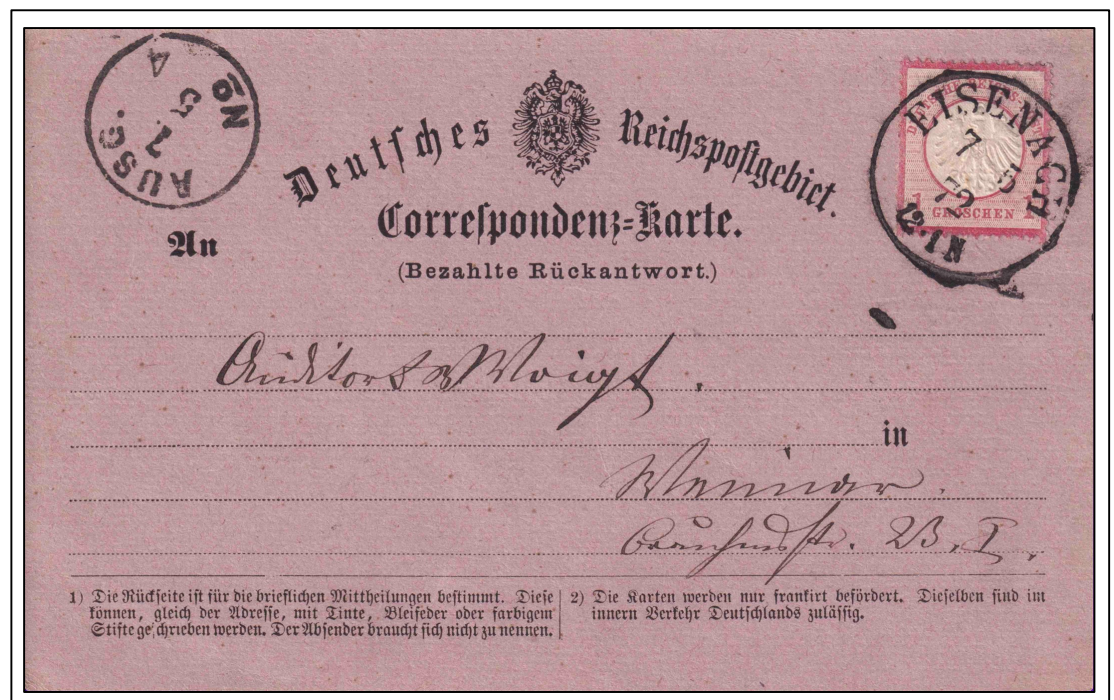 Deutsches Reichspostgebiet.
Correspondenz-Karte.
(Bezahlte Rückantwort.)
AUSG. No
7 5
4
EISENACH
7 5
72
12-1N
1 GROSCHEN 1
An
Auditor Voigt.
in
Weimar.
1) Die Rückseite ist für die brieflichen Mittheilungen bestimmt. Diese
können, gleich der Adresse, mit Tinte, Bleifeder oder farbigem
Stifte geschrieben werden. Der Absender braucht sich nicht zu nennen.
2) Die Karten werden nur frankirt befördert. Dieselben sind im
innern Verkehr Deutschlands zulässig.